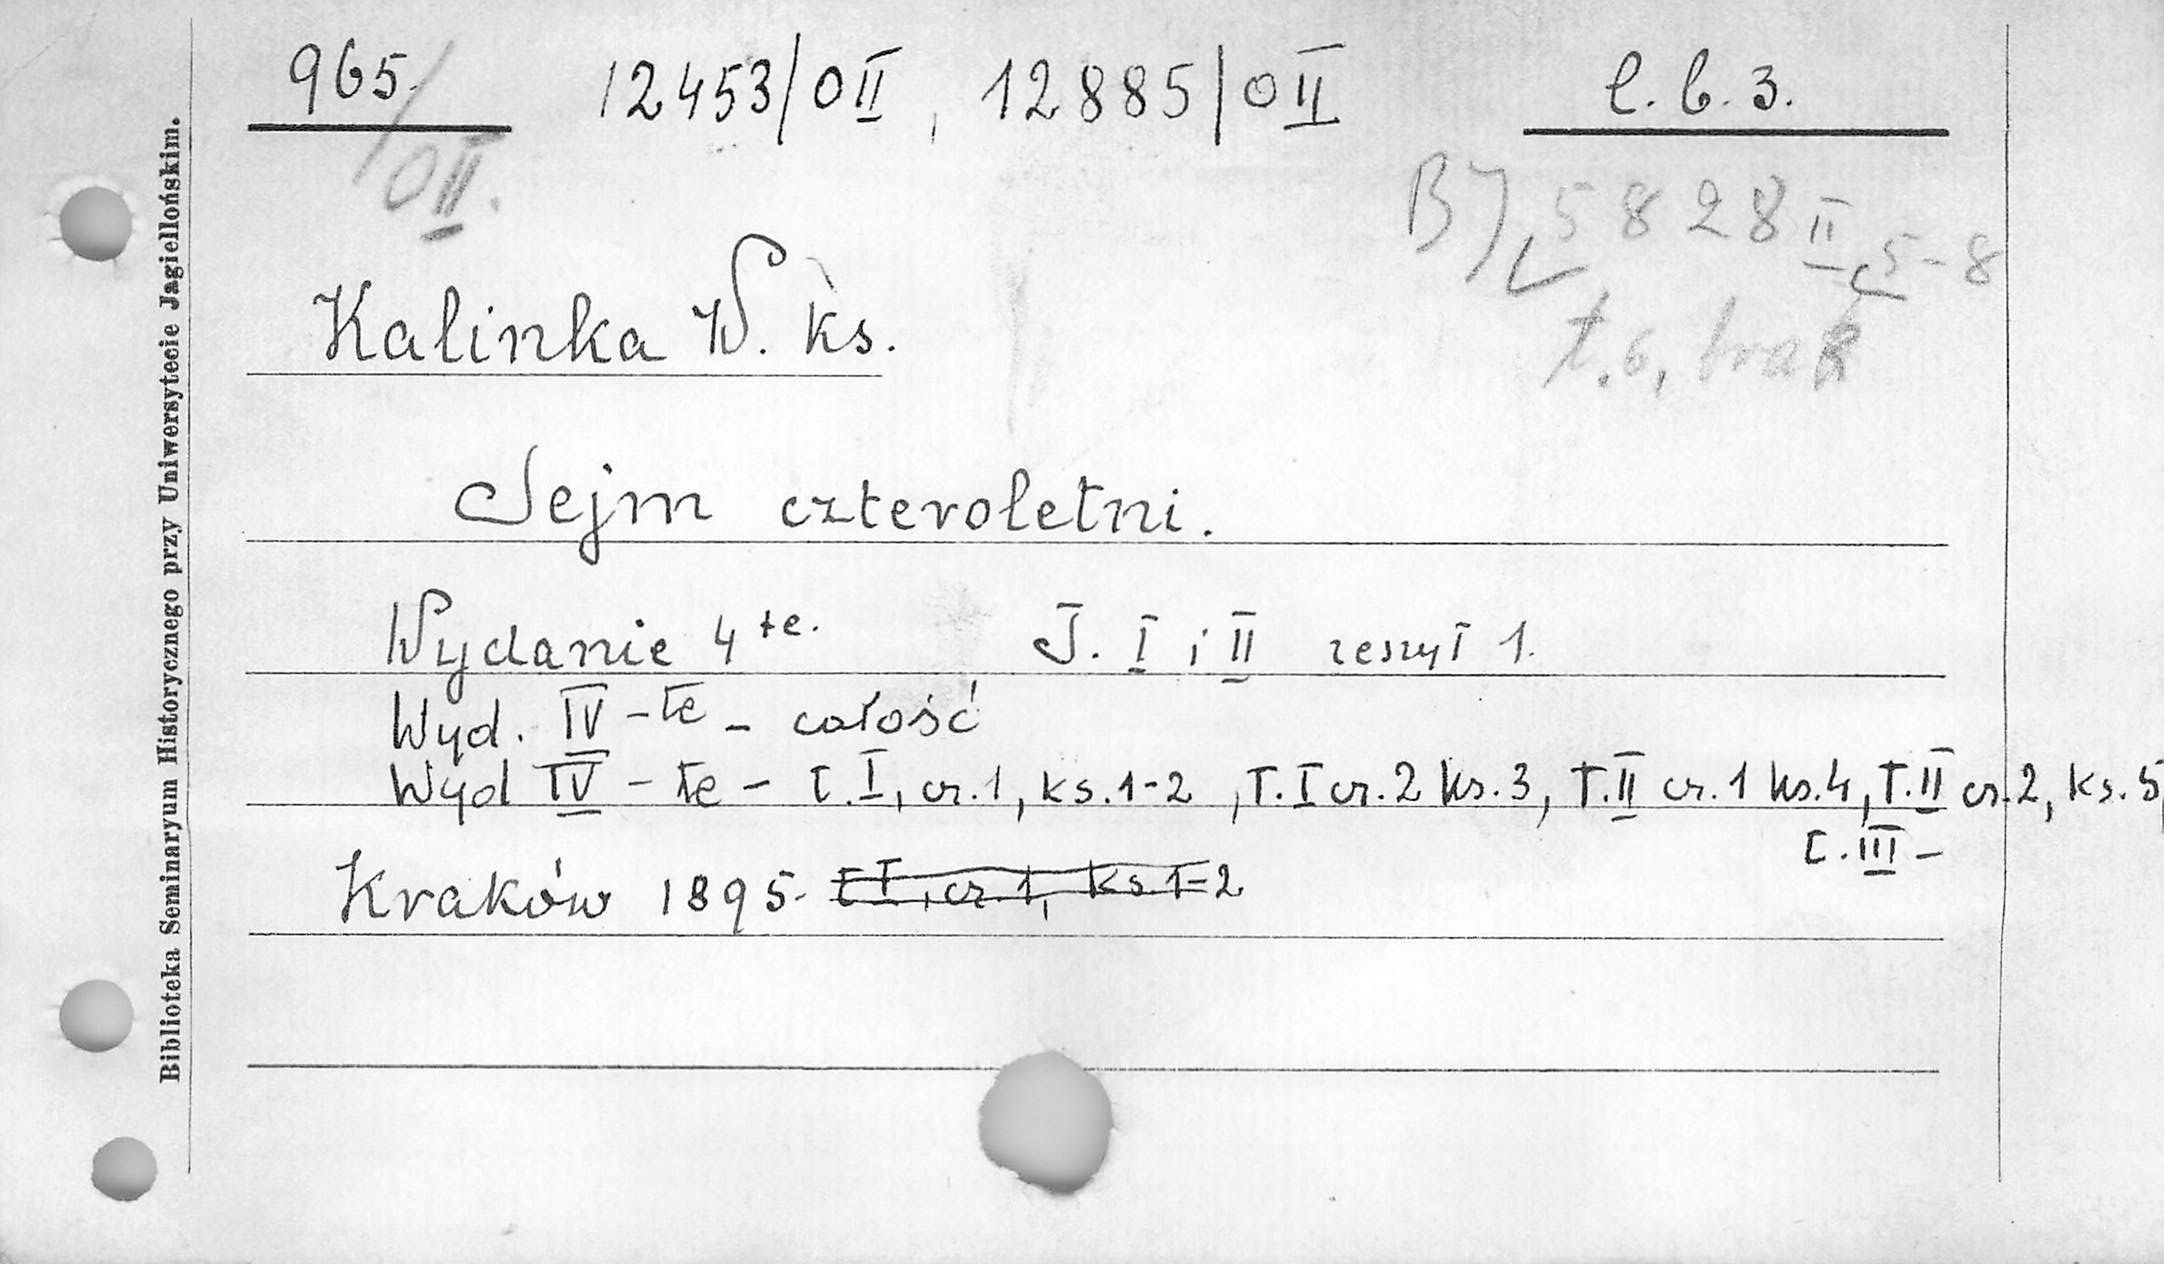 965. / O II. 12453/O II, 12885/O II l. b. 3.
B) 5828 II 5-8
t. 6, brak
Kalinka W. ks.
Sejm czteroletni.
Wydanie 4te. T. I i II zeszyt 1.
Wyd. IV-te - całość
Wyd IV-te - t. I, cz. 1, ks. 1-2, T. I cz. 2 ks. 3, T. II cz. 1 ks. 4, T. II cz. 2, ks. 5,
t. III -
Kraków 1895. t I, cz. 1, ks 1-2
Biblioteka Seminaryum Historycznego przy Uniwersytecie Jagiellońskim.